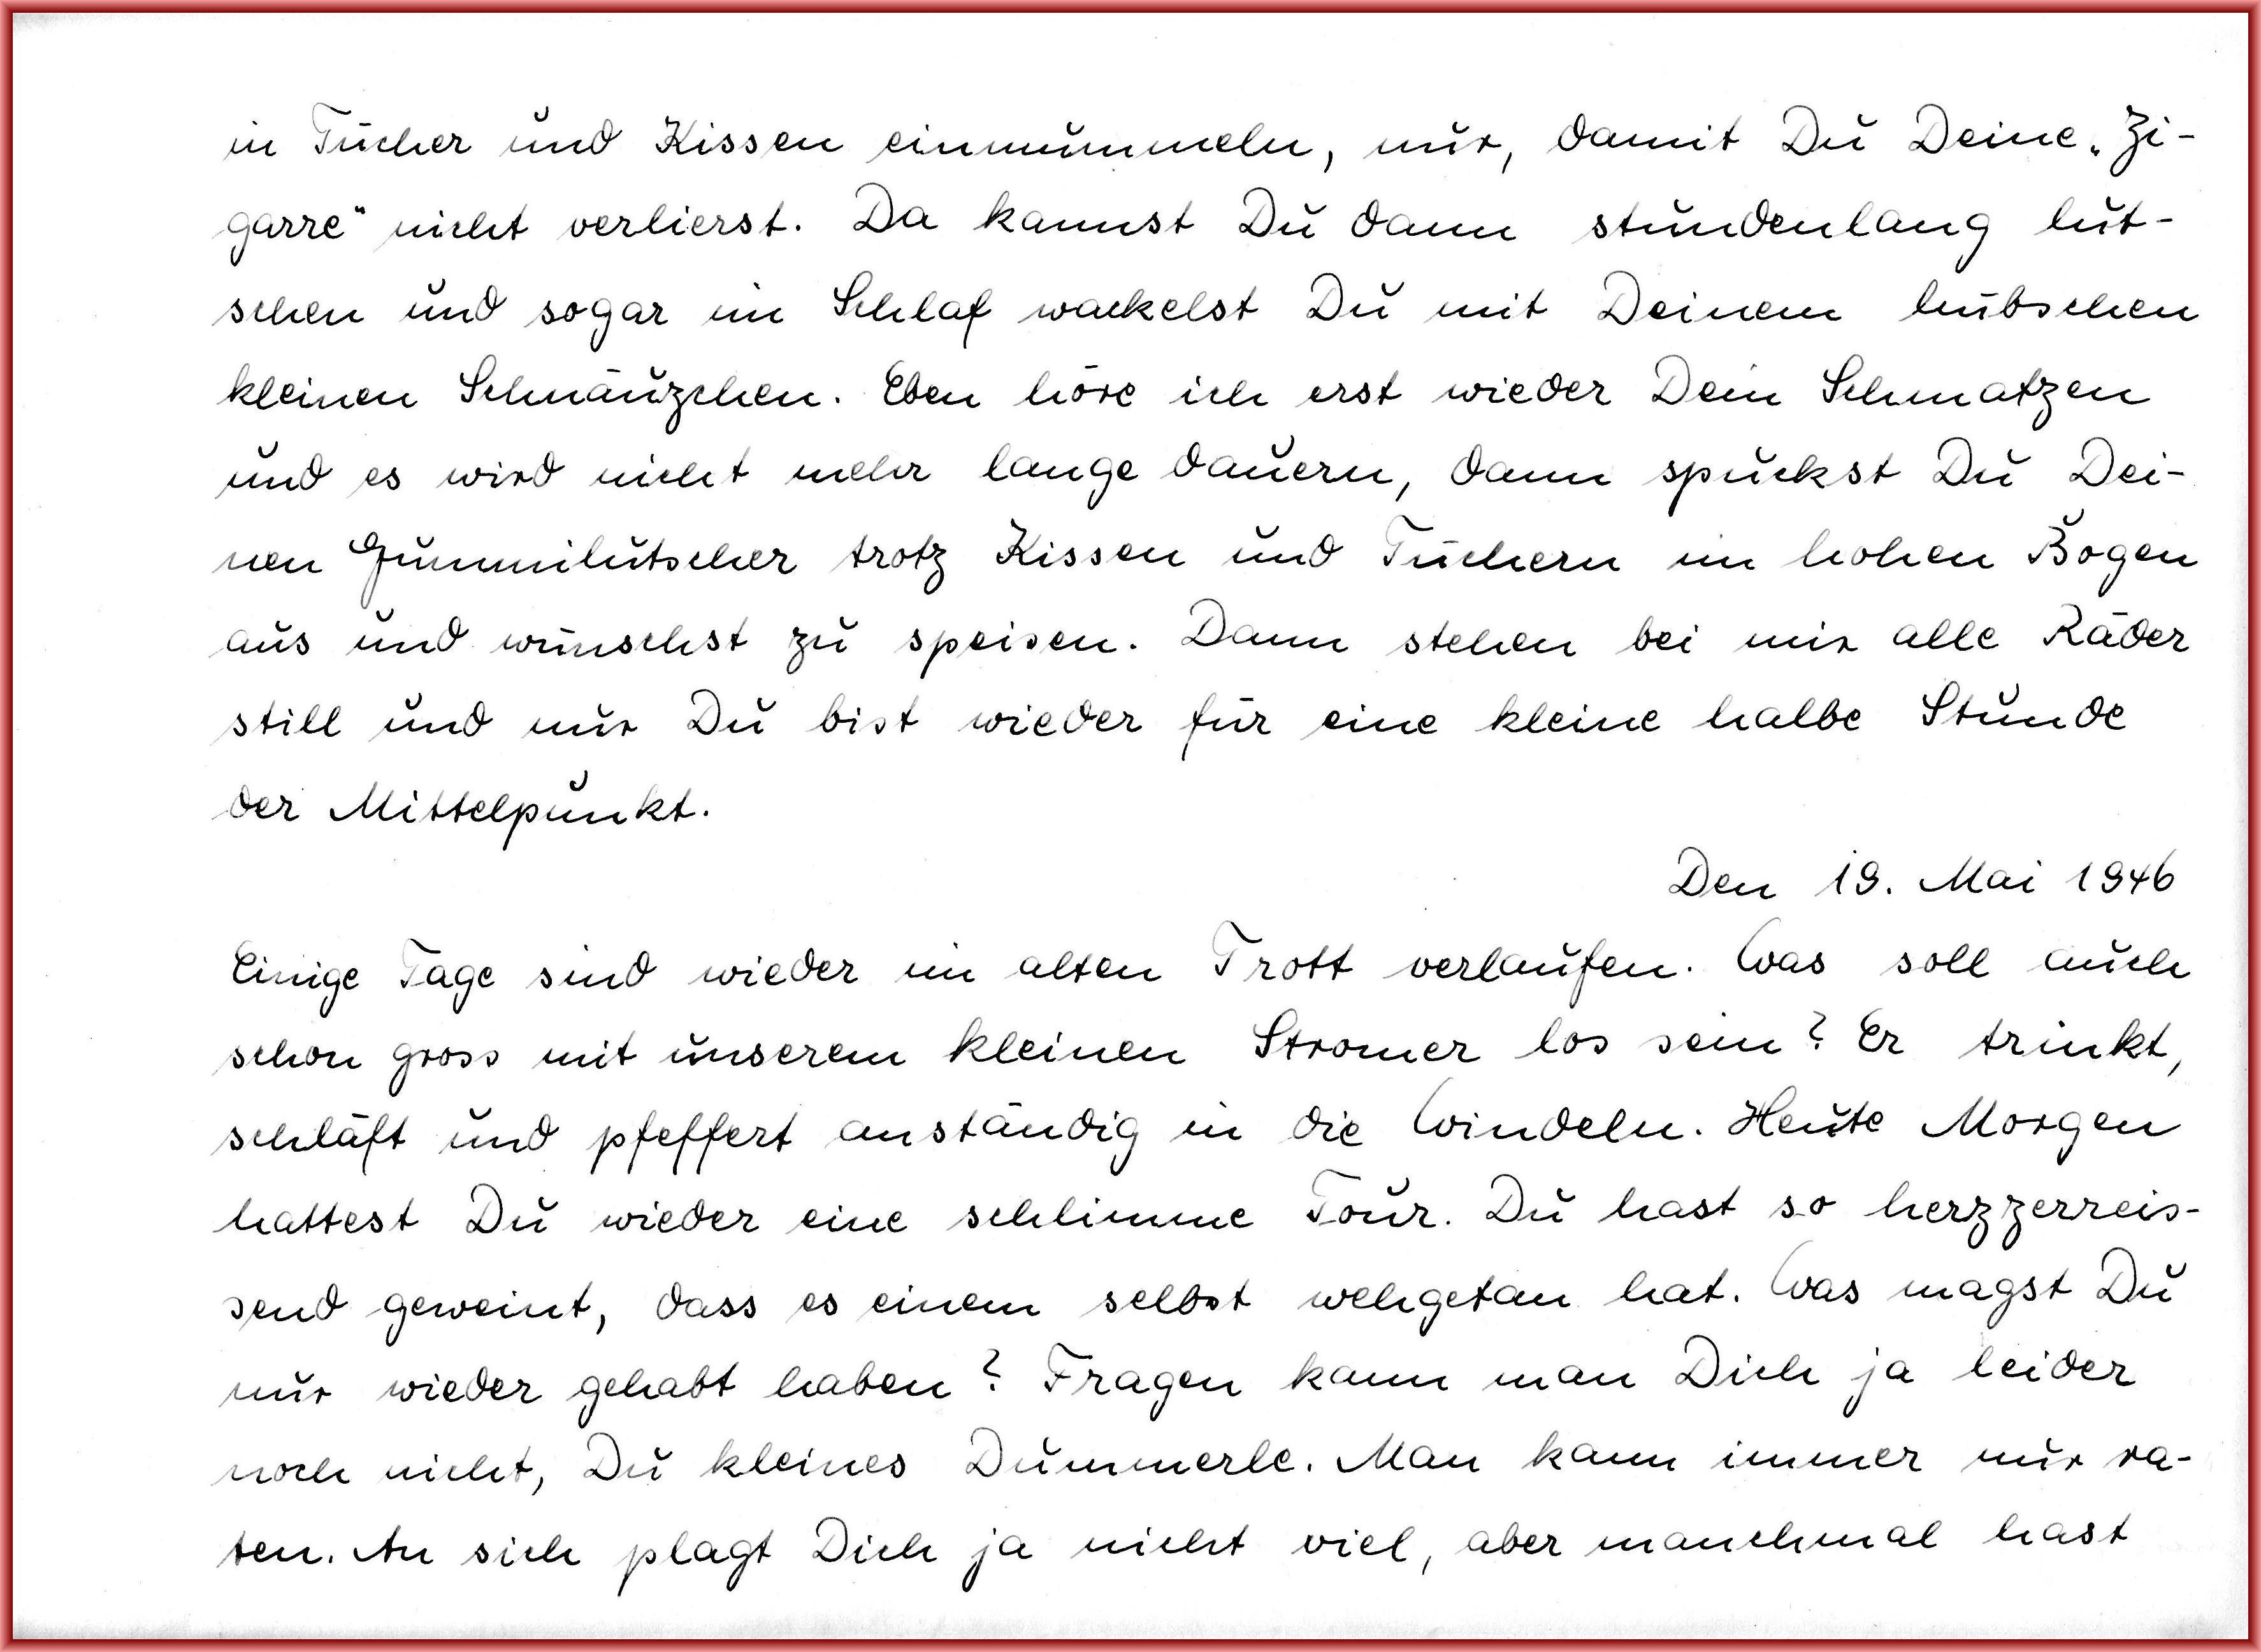 in Tücher und Kissen einmummeln, nur, damit Du Deine „Zi-
garre“ nicht verlierst. Da kannst Du dann stundenlang lut-
schen und sogar im Schlaf wackelst Du mit Deinem hübschen
kleinen Schnäuzchen. Eben höre ich erst wieder Dein Schmatzen
und es wird nicht mehr lange dauern, dann spuckst Du Dei-
nen Gummilutscher trotz Kissen und Tüchern im hohen Bogen
aus und wünschst zu speisen. Dann stehen bei mir alle Räder
still und nur Du bist wieder für eine kleine halbe Stunde
der Mittelpunkt.
Den 19. Mai 1946
Einige Tage sind wieder im alten Trott verlaufen. Was soll auch
schon gross mit unserem kleinen Stromer los sein? Er trinkt,
schläft und pfeffert anständig in die Windeln. Heute Morgen
hattest Du wieder eine schlimme Tour. Du hast so herzzerreis-
send geweint, dass es einem selbst wehgetan hat. Was magst Du
nur wieder gehabt haben? Fragen kann man Dich ja leider
noch nicht, Du kleines Dummerle. Man kann immer nur ra-
ten. An sich plagt Dich ja nicht viel, aber manchmal hast